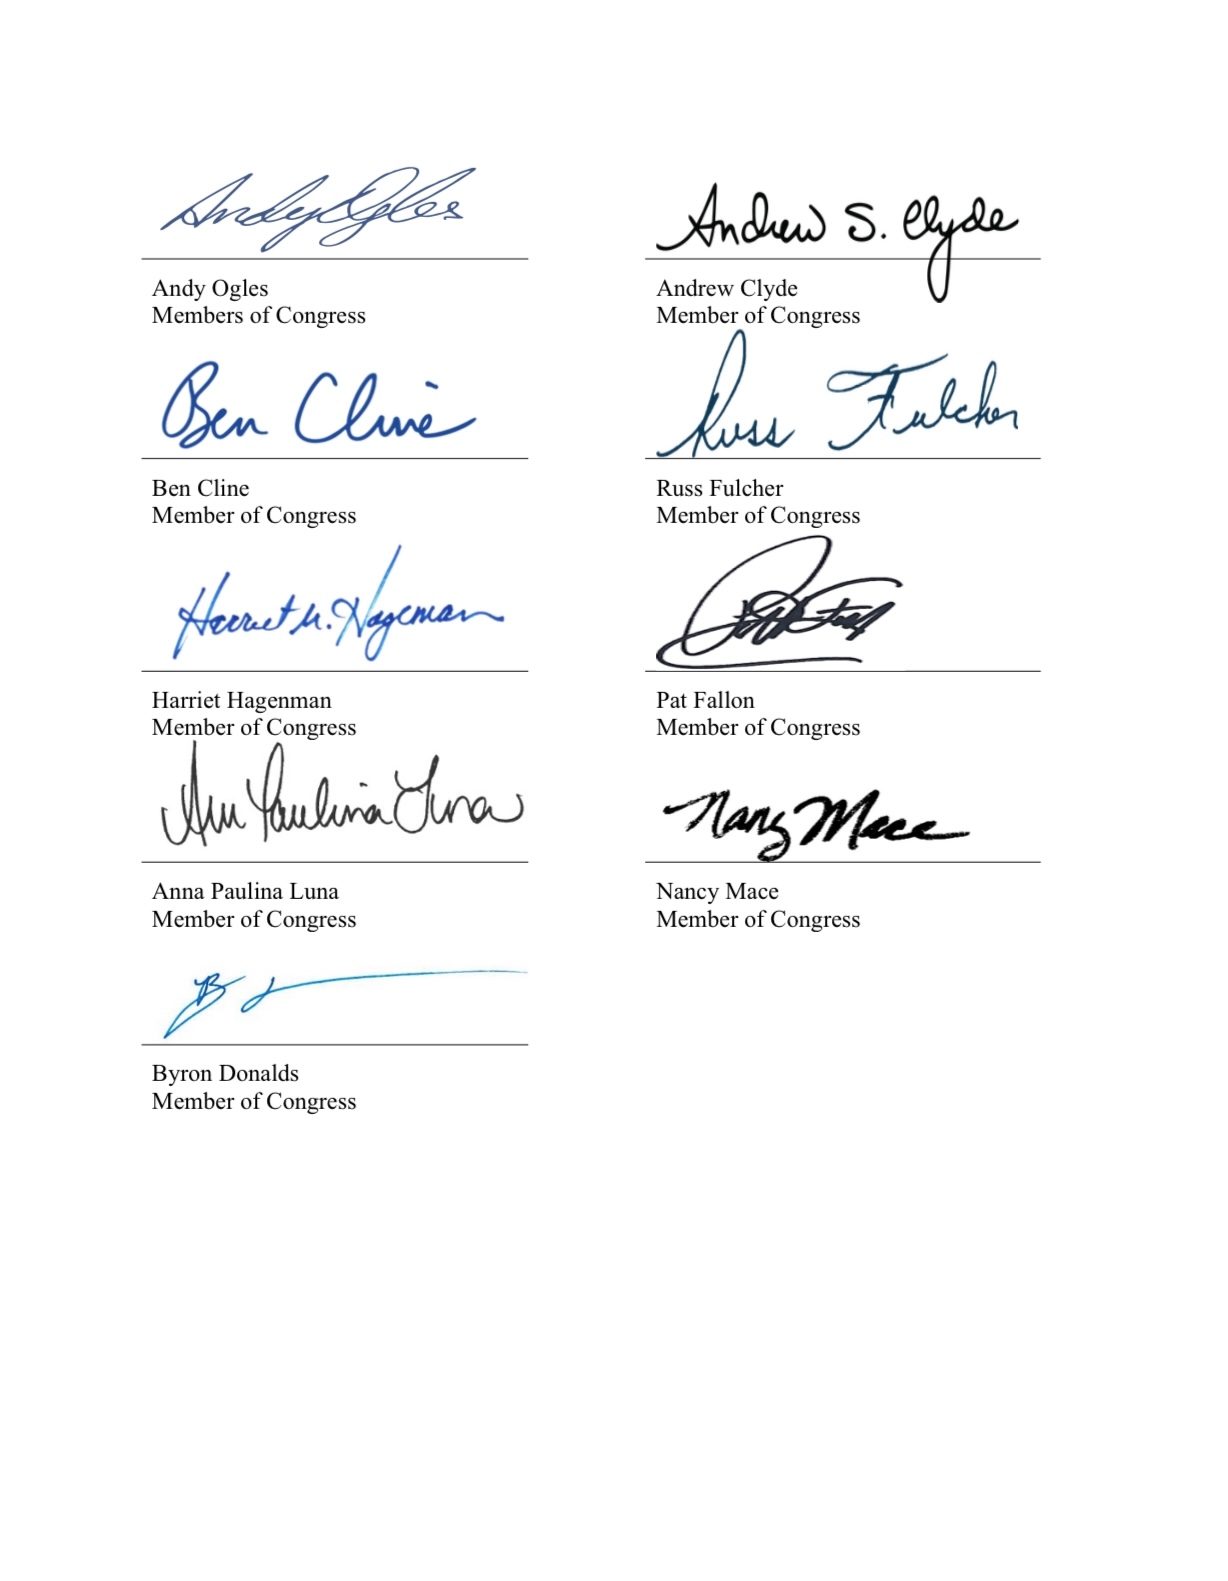 Andy Ogles
Andy Ogles
Members of Congress
Andrew S. Clyde
Andrew Clyde
Member of Congress
Ben Cline
Ben Cline
Member of Congress
Russ Fulcher
Russ Fulcher
Member of Congress
Harriet M. Hageman
Harriet Hagenman
Member of Congress
Pat Fallon
Member of Congress
Anna Paulina Luna
Anna Paulina Luna
Member of Congress
Nancy Mace
Nancy Mace
Member of Congress
Byron Donalds
Member of Congress